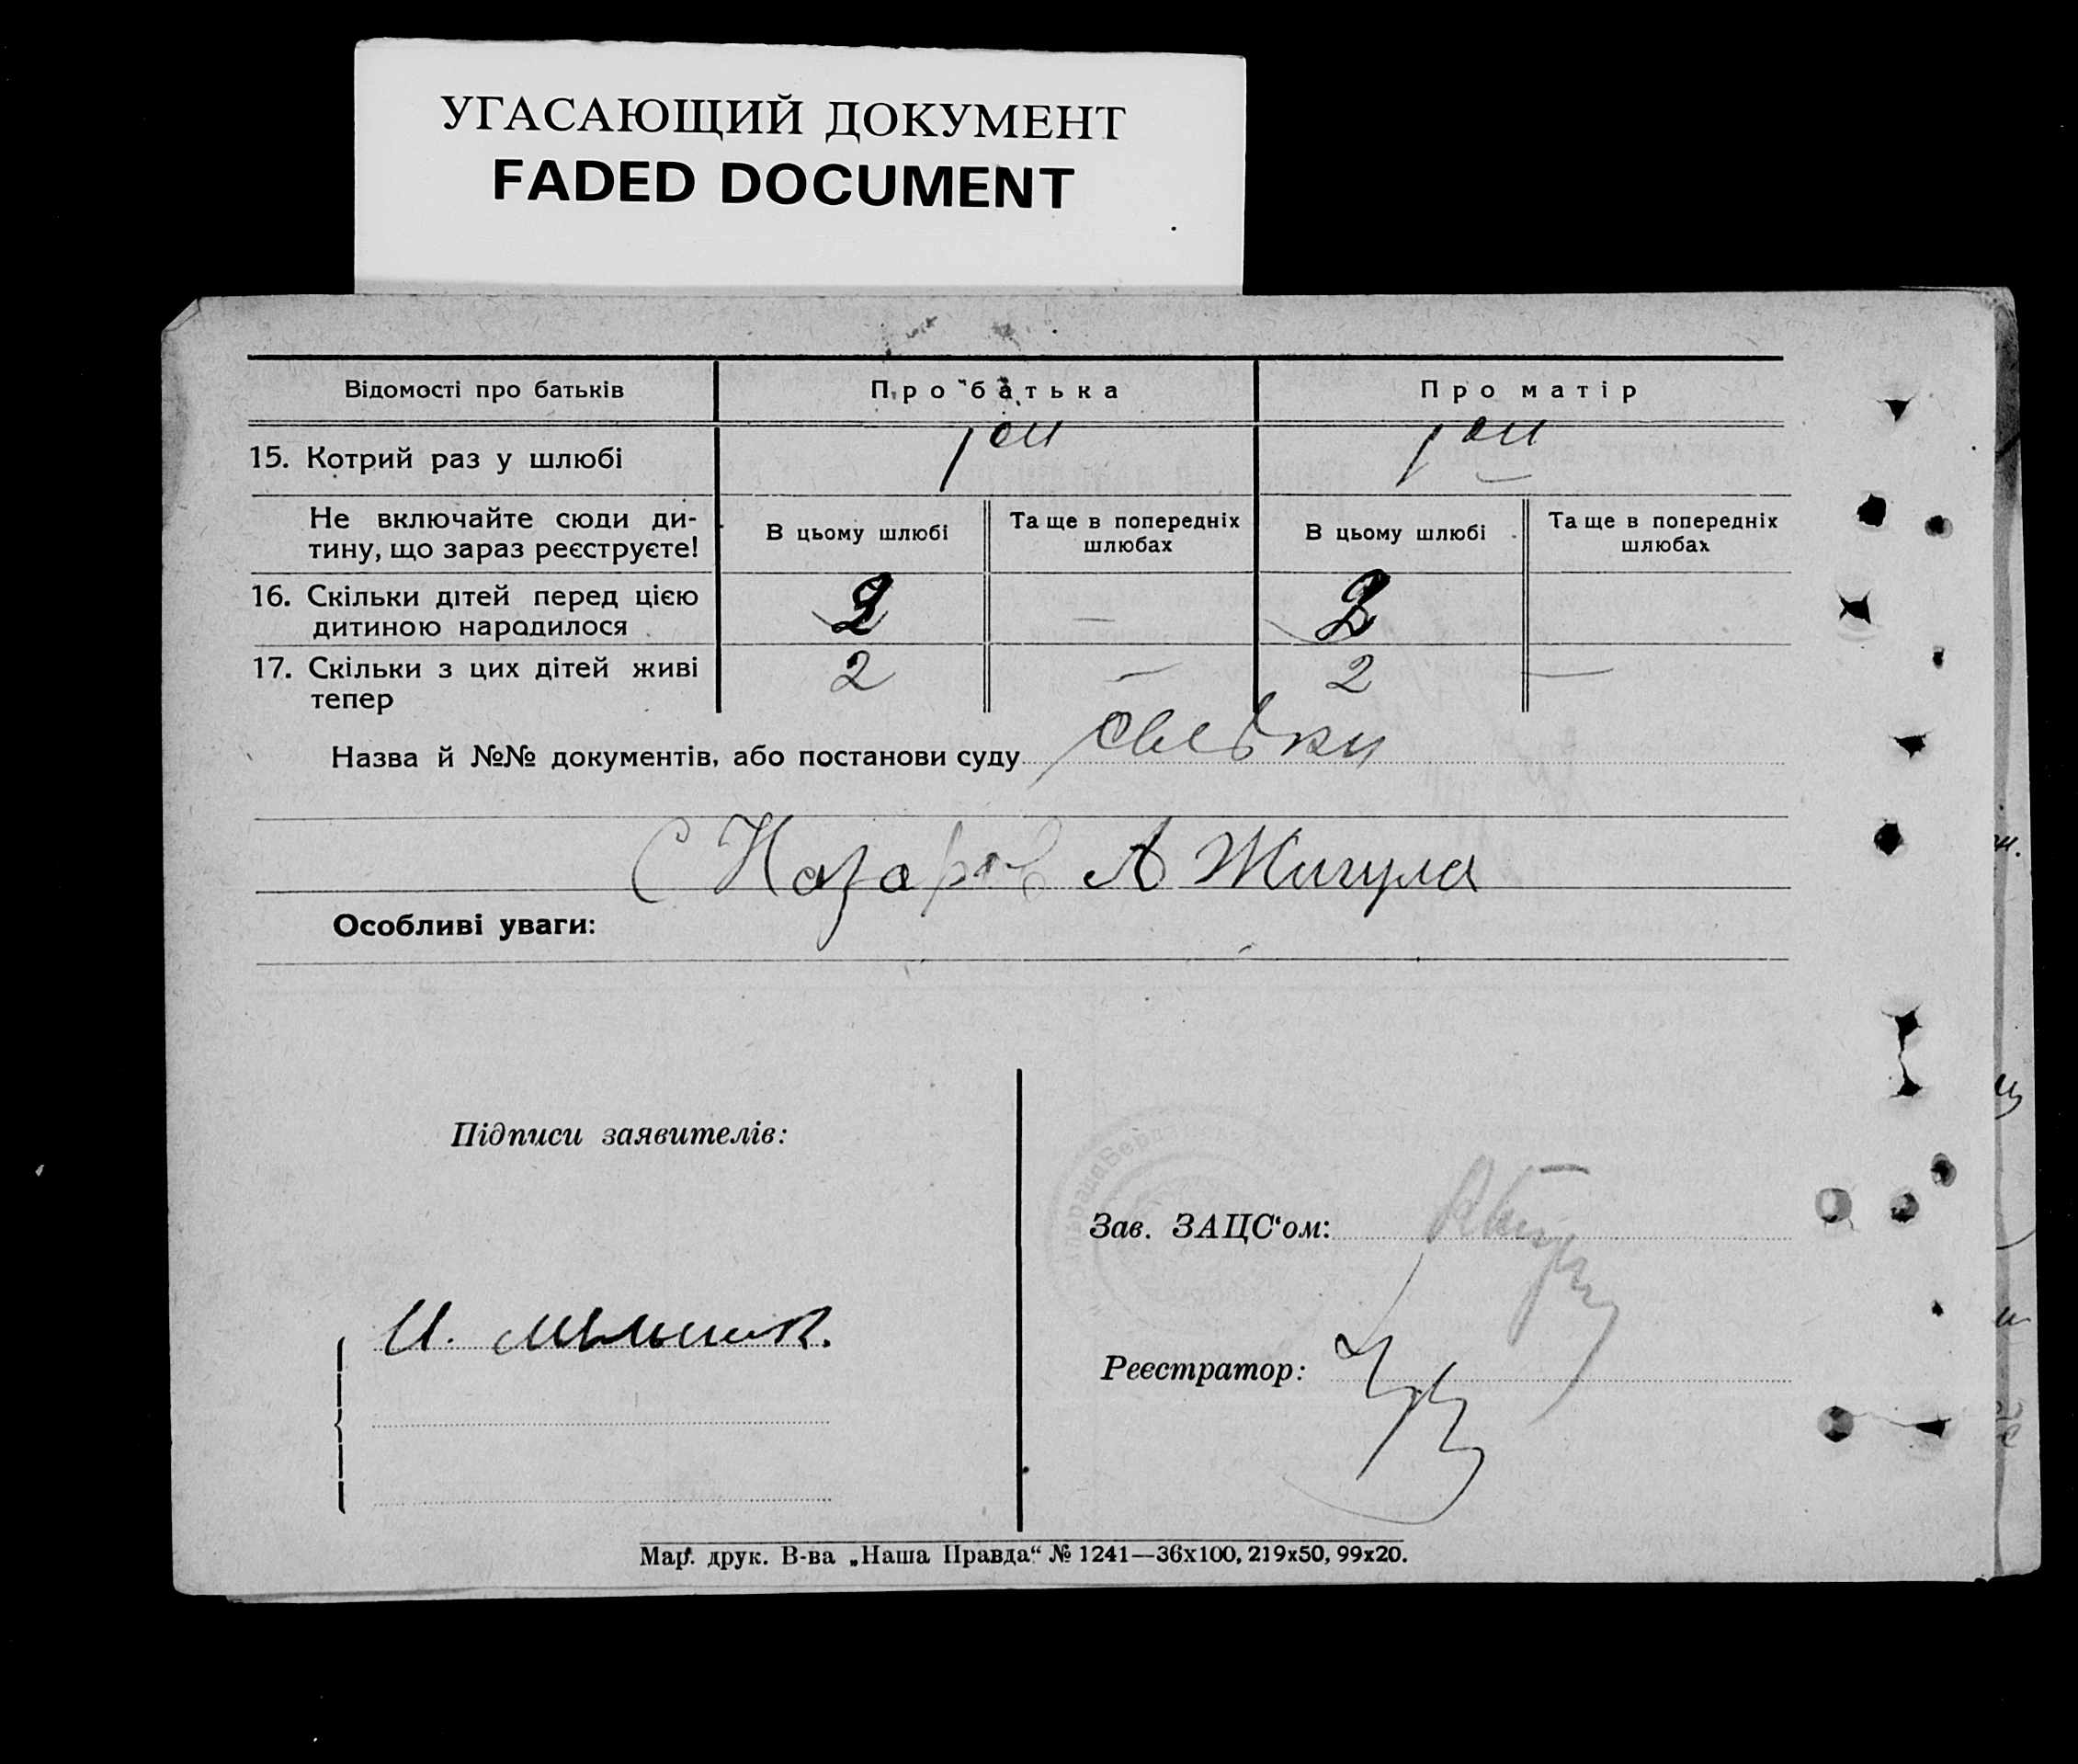 УГАСАЮЩИЙ ДОКУМЕНТ
FADED DOCUMENT
Відомості про батьків Про батька Про матір
15. Котрий раз у шлюбі 1ой 1ой
Не включайте сюди ди-
тину, що зараз реєструєте!
В цьому шлюбі Та ще в попередніх шлюбах В цьому шлюбі Та ще в попередніх шлюбах
16. Скільки дітей перед цією
дитиною народилося 2 — 2
17. Скільки з цих дітей живі
тепер 2 — 2 —
Назва й №№ документів, або постанови суду
С Назаров А Жигула
Особливі уваги:
Підписи заявителів:
Зав. ЗАЦС‘ом:
И. Мельник.
Реєстратор:
Мар. друк. В-ва „Наша Правда“ № 1241—36х100, 219х50, 99х20.